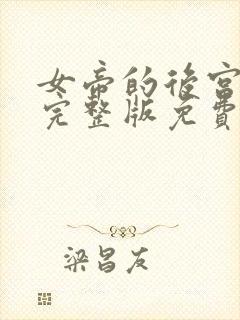 女帝的后宫
完整版免費
梁昌友